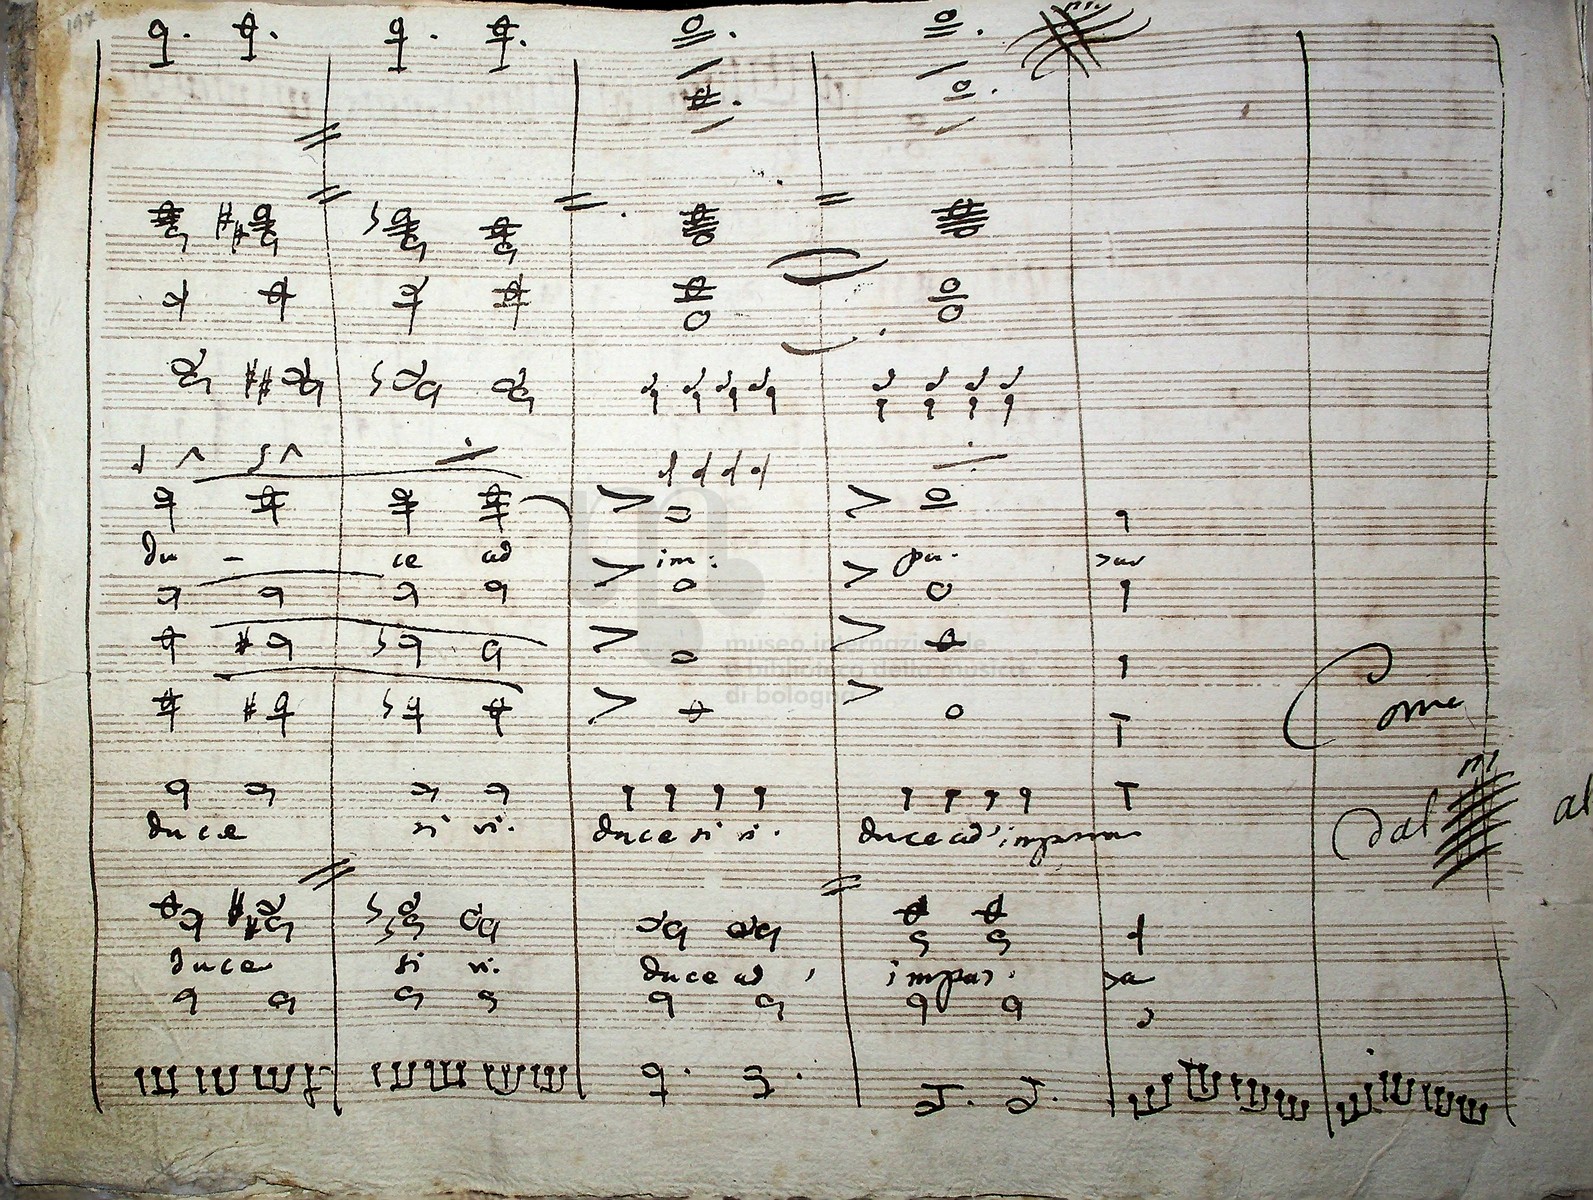 197
du - ce ad im: pa. rar
Come
duce si vi. duce si vi. duce ad impara
dal al
duce si vi. duce ad impar. ra
museo internazionale
e biblioteca della musica
di bologna